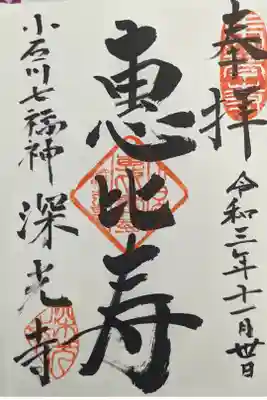 奉拝
令和三年十一月廿日
恵比寿
小石川七福神
深光寺